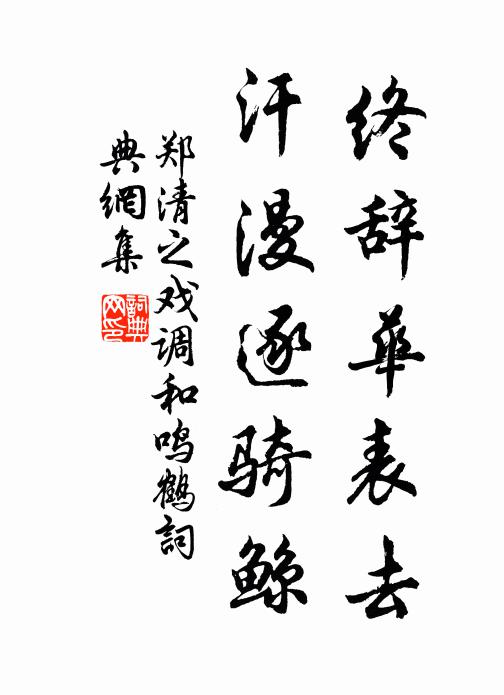 终辞华表去
汗漫逐骑鲸
郑清之戏调和鸣鹤詞
典網集
詞典
网印